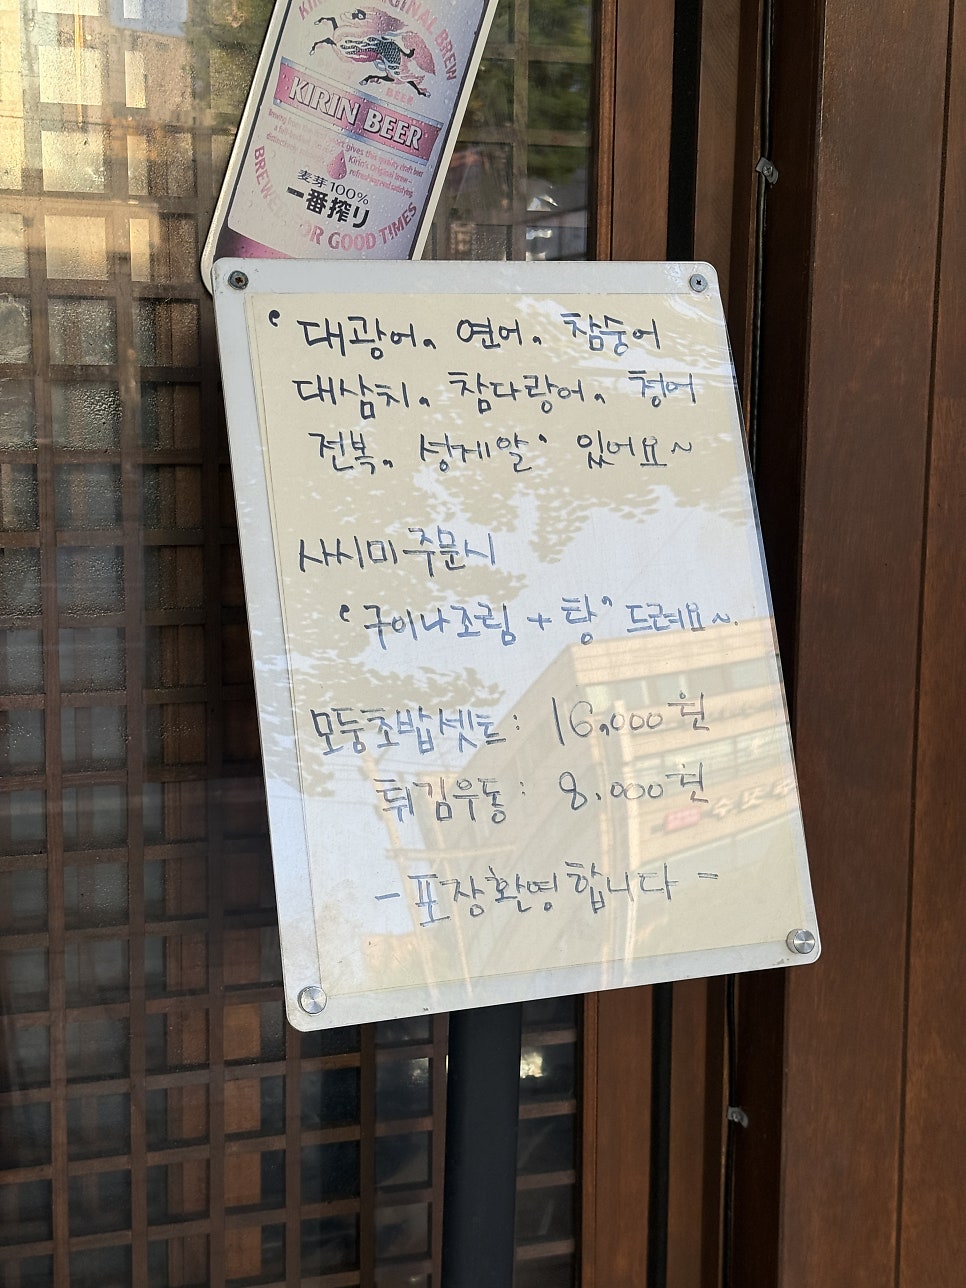 ORIGINAL BREW
BEER
KIRIN BEER
麦芽100%
一番搾り
FOR GOOD TIMES
“대광어, 연어, 참숭어
대삼치, 참다랑어, 청어
전복, 성게알” 있어요~
사시미 주문시
“구이나조림 + 탕” 드려요~.
모둠초밥셋트: 16,000원
튀김우동: 8,000원
- 포장환영합니다 -